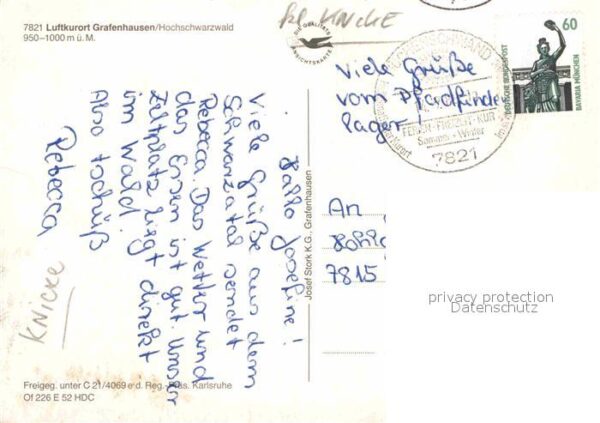 7821 Luftkurort Grafenhausen/Hochschwarzwald
950–1000 m ü. M.
KNICKE
DIE GELIEBTE
ANSICHTSKARTE
Viele Grüße
vom Pfadfinder
lager!
FERIEN-FREIZEIT-KUR
Sommer + Winter
7821
60
DEUTSCHE BUNDESPOST
BAVARIA MÜNCHEN
Hallo Josefine!
Viele Grüße aus dem
Schwarzatal sendet
Rebecca. Das Wetter und
das Essen ist gut. Unser
Zeltplatz liegt direkt
im Wald.
Also tschüß
Rebecca
KNICKE
Josef Stork K.G., Grafenhausen
An
7815
privacy protection
Datenschutz
Freigeg. unter C 21/4069 e d. Reg.-Präs. Karlsruhe
Of 226 E 52 HDC